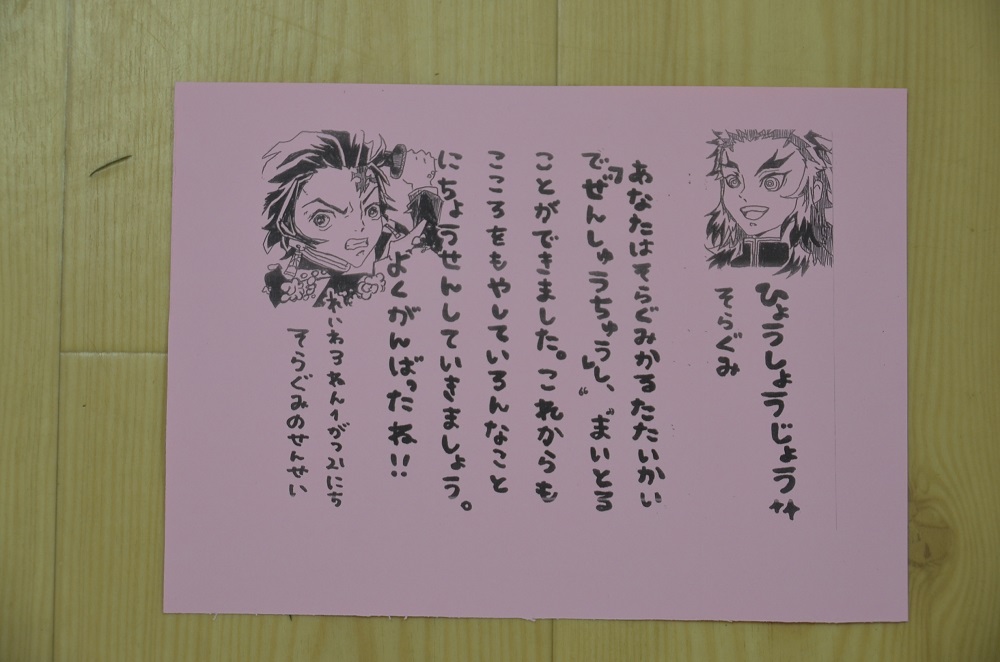 ひょうしょうじょう
そらぐみ
あなたはそらぐみかるたたいかい
で『ぜんしゅうちゅう』し、〝まいとる
ことができました。これからも
こころをもやしていろんなこと
にちょうせんしていきましょう。
よくがんばったね!!
れいわ3ねん1がつ21にち
そらぐみのせんせい